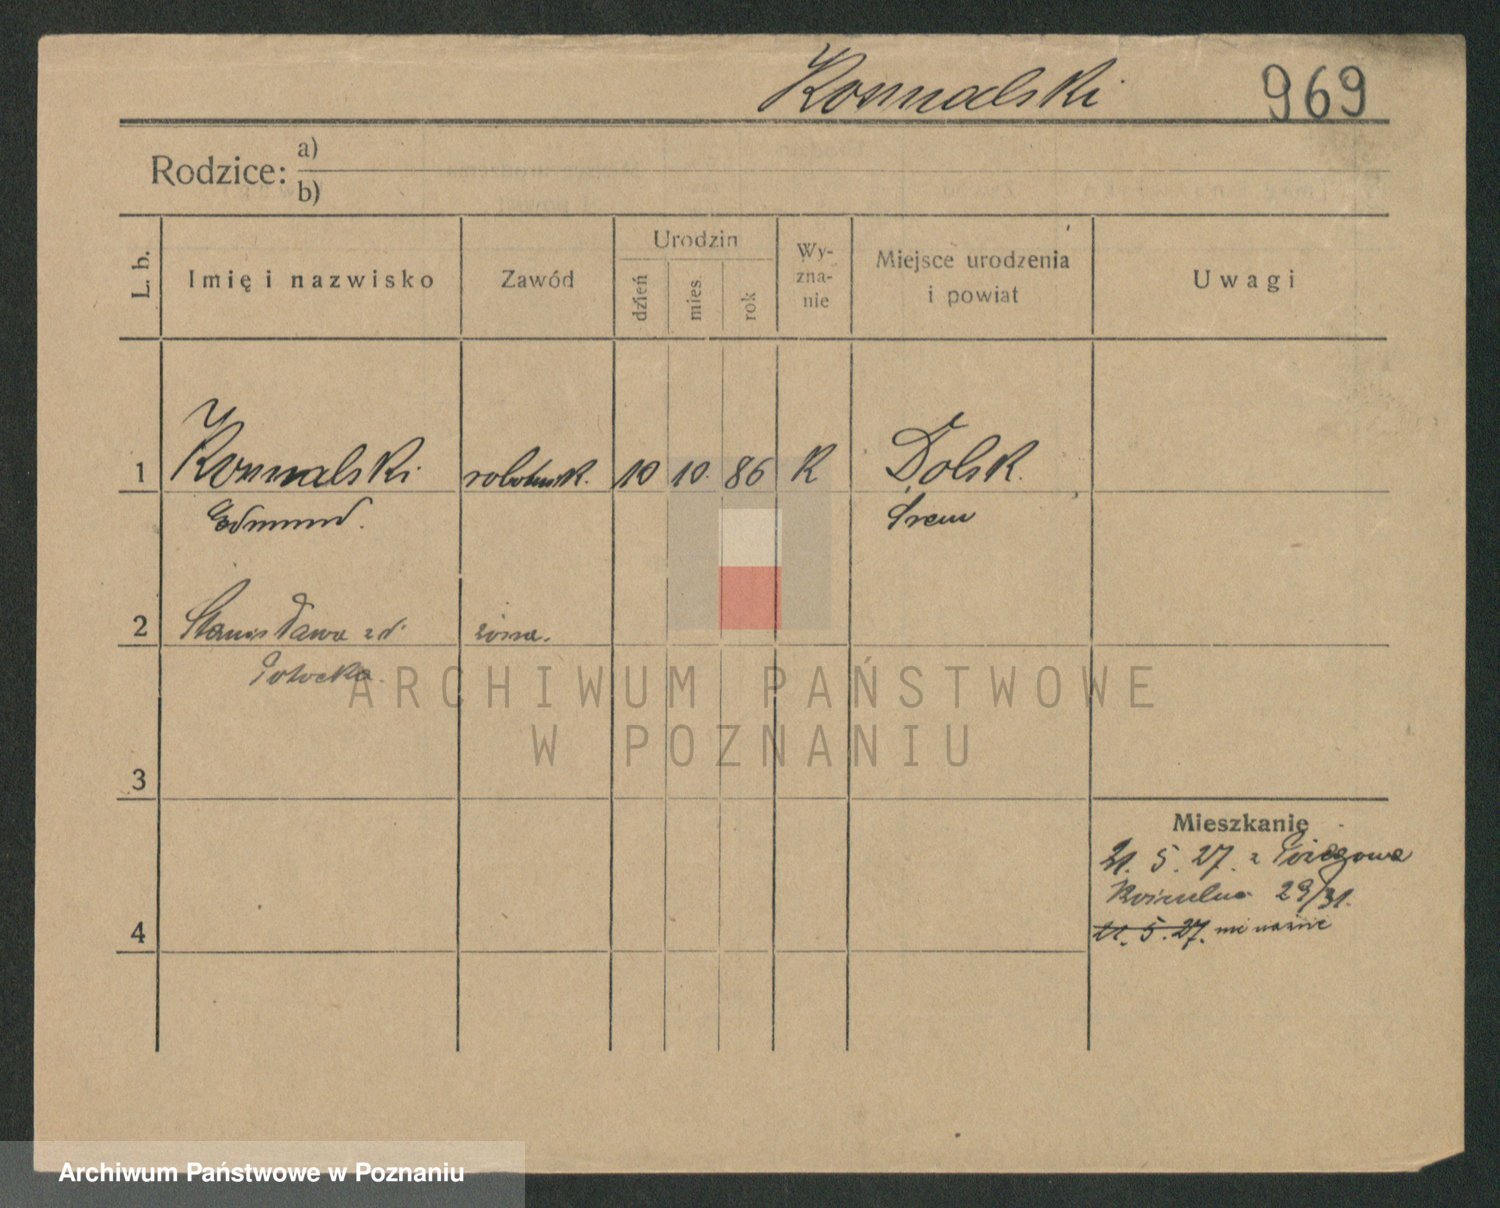 Kosmalski 969
Rodzice: a)
b)
L. b. Imię i nazwisko Zawód Urodzin dzień mies. rok Wy-zna-nie Miejsce urodzenia i powiat Uwagi
1 Kosmalski robotnik. 10 10. 86 K Dolsk.
Edmund. Śrem
2 Stanisława zd. żona.
Potocka.
3
Mieszkanie
21. 5. 27. z
29/31.
4 21. 5. 27.
ARCHIWUM PAŃSTWOWE
W POZNANIU
Archiwum Państwowe w Poznaniu